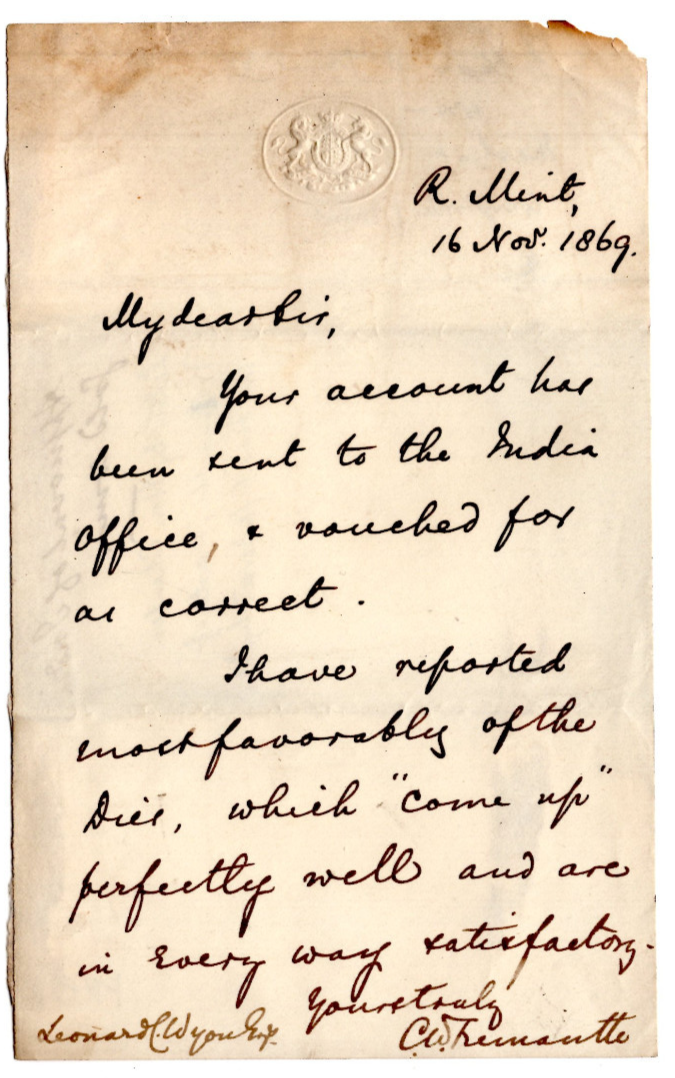 R. Mint,
16 Nov. 1869.
My dear Sir,
Your account has
been sent to the India
Office, & vouched for
as correct.
I have reported
most favorably of the
Dies, which "come up"
perfectly well and are
in every way satisfactory.
Yours truly
C.W. Fremantle
Leonard C. Wyon Esq.